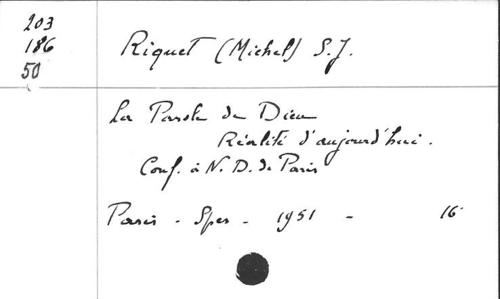 203
186
50
Riquet (Michel) S.J.
La Parole de Dieu
Réalité d'aujourd'hui.
Conf. à N. D. de Paris
Paris - Spes - 1951 - 16